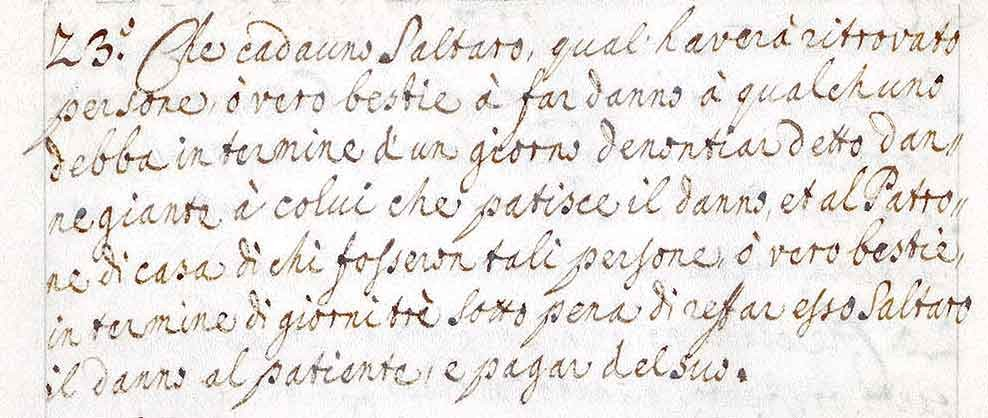 23.º Che cadauno Saltaro, qual haverà ritrovato
persone, ò vero bestie à far danno à qualchuno
debba in termine d'un giorno denontiar detto dan„
negiante à colui che patisce il danno, et al Patro„
ne di casa di chi fosseron tali persone, ò vero bestie,
in termine di giorni trè sotto pena di reffar esso Saltaro
il danno al patiente, e pagar del suo.